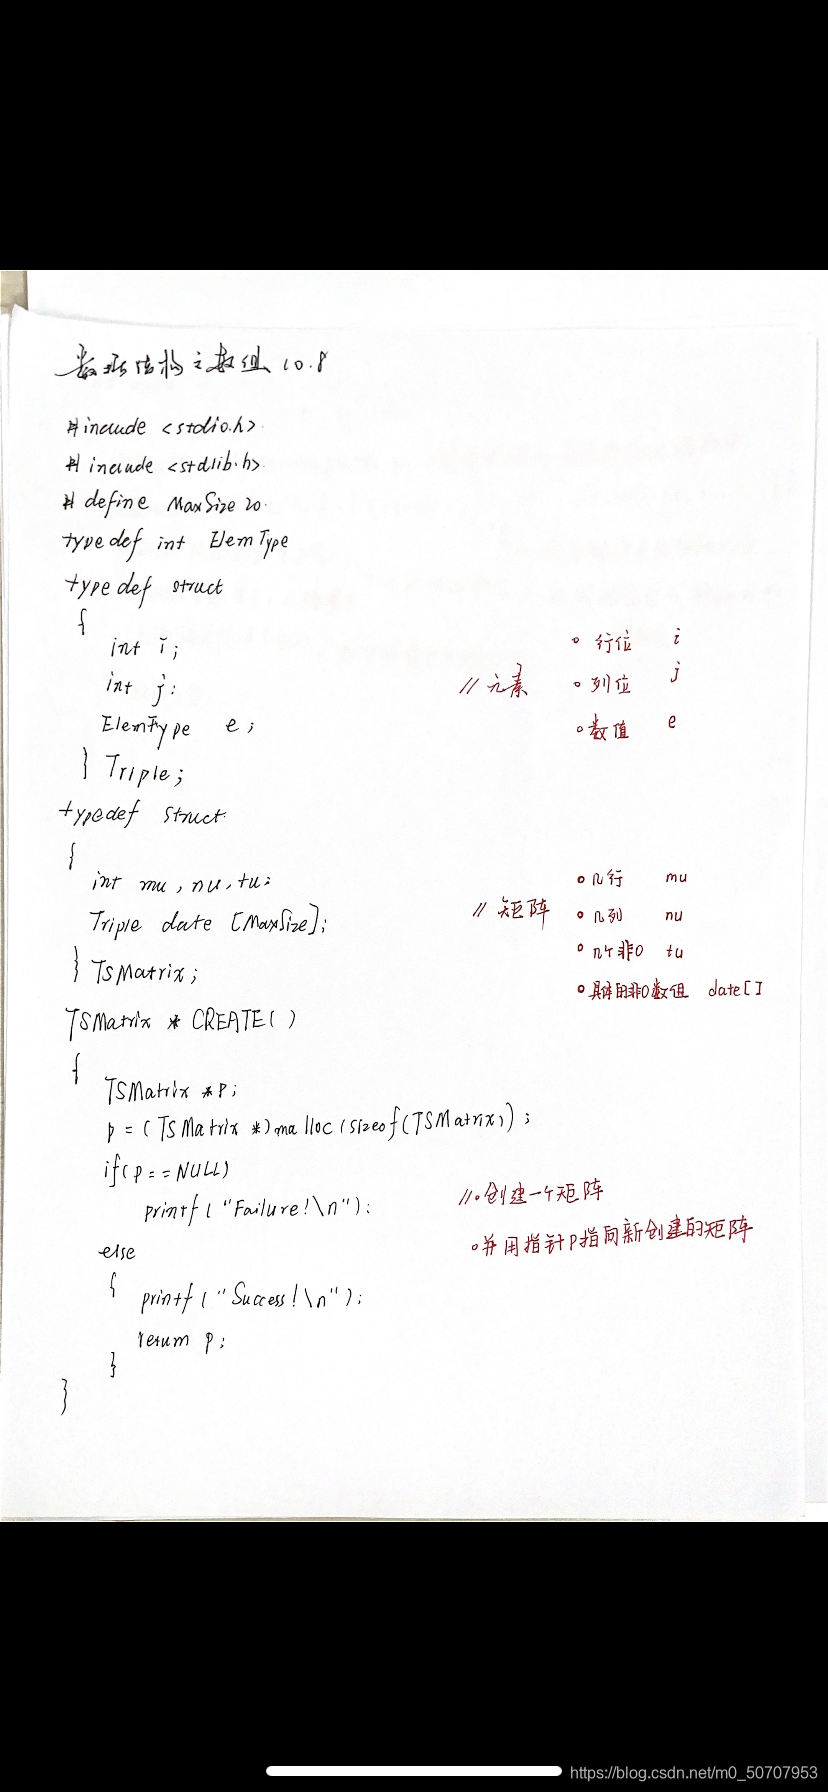 数据结构之数组 10.8
#include <stdio.h>
#include <stdlib.h>
#define MaxSize 20
typedef int ElemType
typedef struct
{
int i;
• 行位 i
int j;
// 元素 • 列位 j
ElemType e;
• 数值 e
} Triple;
typedef struct
{
int mu, nu, tu;
• 几行 mu
Triple date [MaxSize];
// 矩阵 • 几列 nu
• 几个非0 tu
} TSMatrix;
• 具体的非0数组 date[]
TSMatrix * CREATE()
{
TSMatrix *p;
p = (TSMatrix *)malloc(sizeof(TSMatrix));
if(p==NULL)
printf("Failure!\n");
// • 创建一个矩阵
• 并用指针P指向新创建的矩阵
else
{
printf("Success!\n");
return p;
}
}
https://blog.csdn.net/m0_50707953